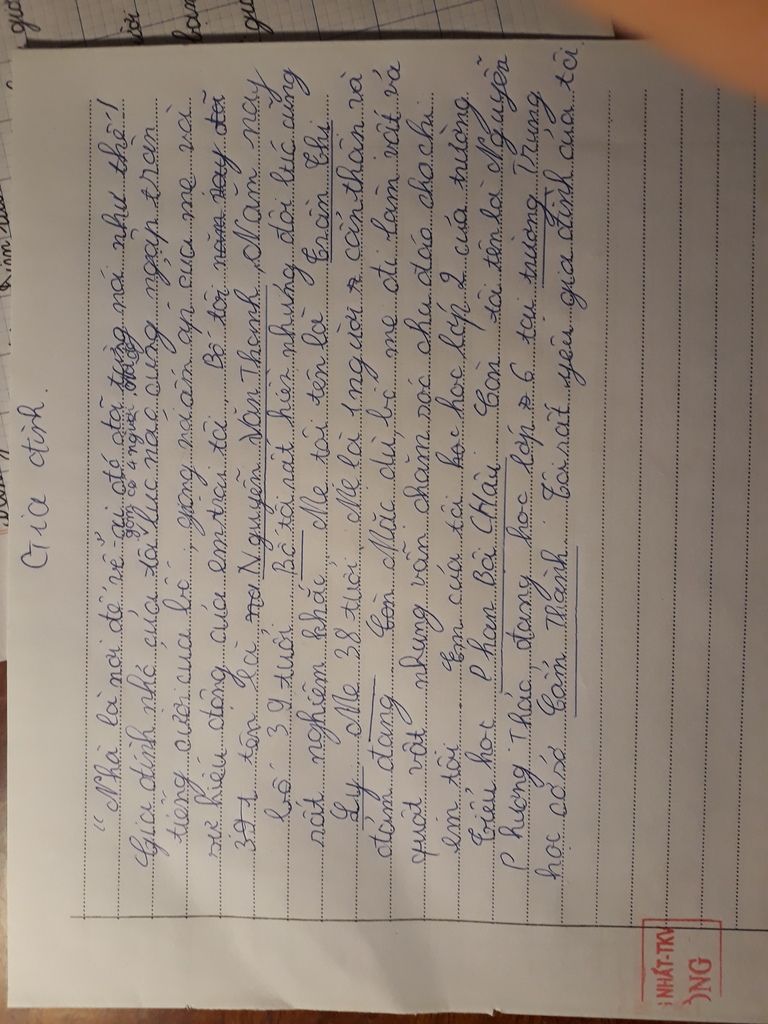 Gia đình.
"Nhà là nơi để về" ai đó đã từng nói như thế!
gồm có 4 người
Gia đình nhỏ của tôi lúc nào cũng ngập tràn
tiếng cười của bố, giọng nói ấm áp của mẹ và
sự hiếu động của em trai tôi. Bố tôi năm nay đã
39t tên là Nguyễn Văn Thanh. Năm nay
bố 39 tuổi. Bố tôi rất hiền nhưng đôi lúc cũng
rất nghiêm khắc. Mẹ tôi tên là Trần Thị
Ly. Mẹ 38 tuổi. Mẹ là 1 người cẩn thận và
đảm đang. Còn Mặc dù, bố mẹ đi làm vất vả
quất vật nhưng vẫn chăm sóc chu đáo cho chị
em tôi. Em của tôi học học lớp 2 của trường
Tiểu học Phan Bội Châu. Còn tôi tên là Nguyễn
Phương Thảo đang học lớp 6 tại trường Trung
học cơ sở Cẩm Thành. Tôi rất yêu gia đình của tôi.
NHẤT-TKV
ONG